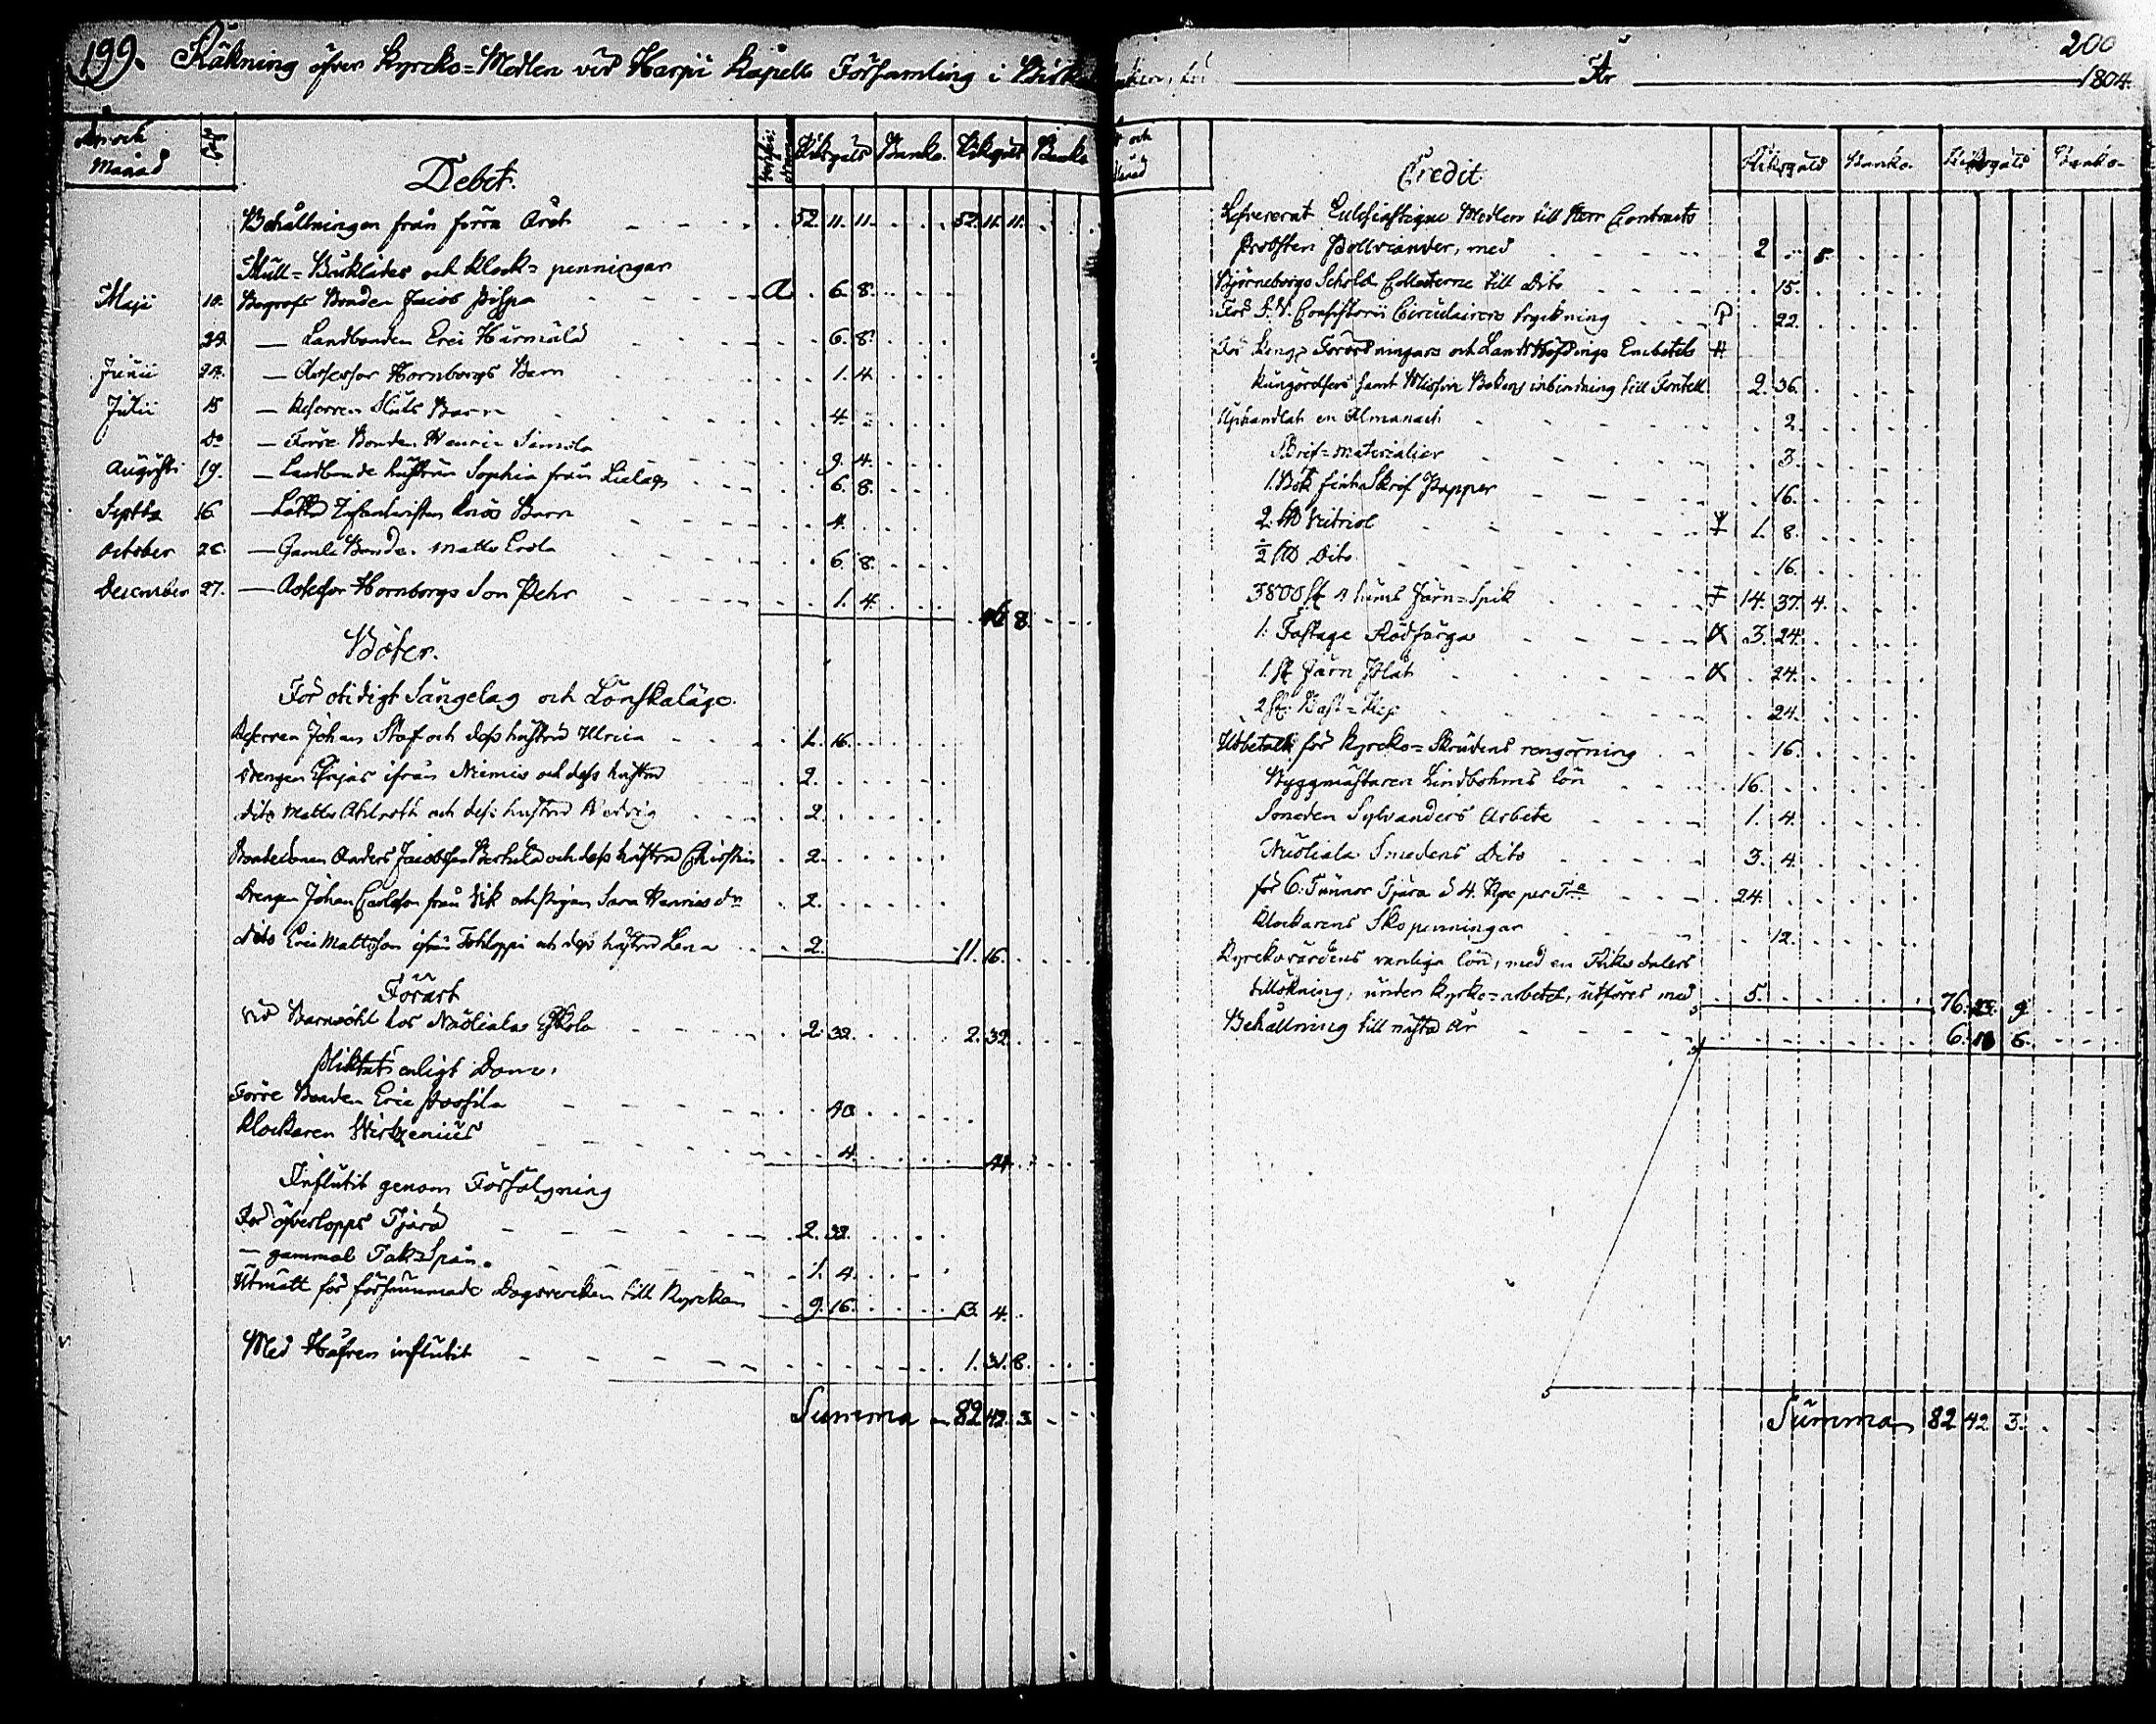 199. Räkning öfver Kyrcko=Medlen vid Harju Kapells Församling i
År och Månad
Riksgäls Banko. Riksgäls Banko
Debet.
Behållningen från förra Året - - - 52. 11. 11. 52. 11. 11.
Mull= Bårklädes och Klock= penningar
Maji 10. Begrofs Bonden Jacob - - - a 6. 8.
24. — Landbonden Eric Härmälä - - - 6. 8.
Junii 24. — Assessor Hornborgs Barn - - - 1. 4.
Julii 15 — Barn - - - 4. -
Do — Förre Bonden Henric Simola - - - 9. 4.
Augusti 19. — Landbonde hustrun Sophia från - - - 6. 8.
Septbr 16. — Barn - - - 4.
October 28. — Gamle Bonden Matts Erola - - - 6. 8.
December 27. — Assessor Hornborgs Son Pehr - - - 1. 4. 8.
Böter.
För otidigt Sängelag och Lönskaläge.
Johan Staf och dess hustru Ulrica - - - 1. 16.
drengen Elias ifrån Niemis och dess hustru 2.
dito Matts Ahlroth och dess hustru Hedvig - - - 2.
Bondesonen Anders Jacobsson och dess hustru Christin 2.
Drengen Johan Carlsson från Vik och pigan Sara Henrics dr 2.
dito Eric Mattsson ifrån och dess hustru Lena 2. 11. 16.
Förärt
vid Barnsöhl hos Näsiala Eskola - - - 2. 32. 2. 32.
Pliktat enligt Dom.
Förre Bonden Eric - - - 40.
Klockaren - - - 4. 44.
Influtit genom Försälgning
För öfverlopps Tjära - - - 2. 32.
— gammal Tak=Spån. - - - 1. 4.
Utmätt för försummade Dagsvercken till Kyrckan 9. 16. 13. 4.
Med Håfven influtit - - - 1. 31. 8.
Summa - 82. 42. 3.
200
År 1804.
Riksgäls Banko. Riksgäls Banko
Credit
Medlen till Herr Contracts
Probsten med - - - 2 - 5.
Björneborgs Schola Collecterne till Dito - - - 15.
För Consistorii Circulairers tryckning - - - 22.
För Kongl. Förordningars och Landshöfdinge Embetets
Kungörelsers samt Missive Bokens inbindning till 2. 36.
Uphandlat en Almanach - - - 2.
Bref=materialier - - - 3.
1. Bok fint Skrif Papper - - - 16.
2. ℔ Vitriol - - - 1. 8.
½ ℔ Dito - - - 16.
3800 st. 4 tums Järn=Spik - - - 14. 37. 4.
1. Fastage Rödfärga - - - 3. 24.
1. st. Järn Plåt - - - 24.
2 st. Bast=Rep - - - 24.
Utbetalt för Kyrcko=Skrudens rengörning - - 16.
Byggmästaren Lindbohms lön - - - 16.
Smeden Sylvanders Arbete - - - 1. 4.
Näsiala Smedens Dito - - - 3. 4.
för 6. Tunnor Tjära à 4. Rdr per Tna - - - 24.
Klockarens Skopenningar - - - 12.
Kyrckovärdens vanliga lön, med en Riksdalers
tillökning, under Kyrko=arbetet, utföres med 5. 76. 23. 9
Behållning till nästa År - - - 6. 18 6.
Summa 82 42 3.